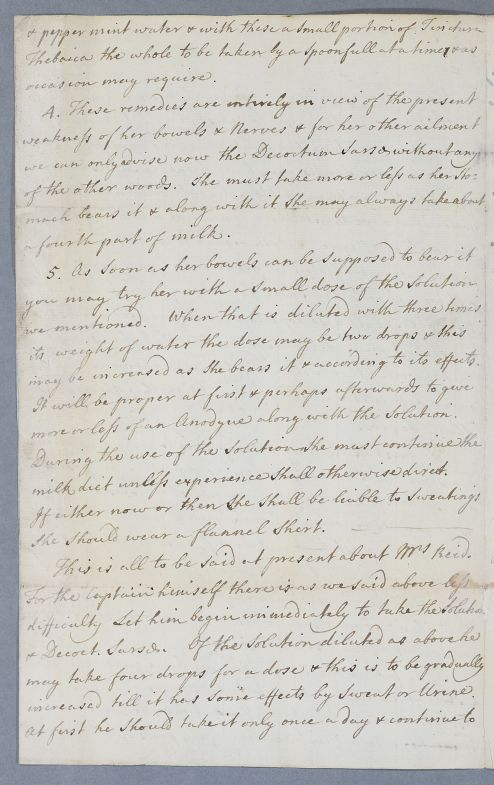 & pepper mint water & with these a small portion of Tinctura
Thebaica the whole to be taken by a spoonfull at a time & as
occasion may require.
4. These remedies are intirely in view of the present
weakness of her bowels & Nerves & for her other ailment
we can only advise now the Decoctum Sarsæ without any
of the other woods. She must take more or less as her sto=
mach bears it & along with it she may always take about
a fourth part of milk.
5. As soon as her bowels can be supposed to bear it
you may try her with a small dose of the solution
we mentioned. When that is diluted with three times
its weight of water the dose may be two drops & this
may be increased as she bears it & according to its effects.
It will be proper at first & perhaps afterwards to give
more or less of an Anodyne along with the solution.
During the use of the solution she must continue the
milk diet unless experience shall otherwise direct.
If either now or then she shall be liable to sweatings
she should wear a flannel shirt.
This is all to be said at present about Mrs Reid.
For the captain himself there is as we said above less
difficulty Let him begin immediately to take the solution
& Decoct. Sarsæ. Of the solution diluted as above he
may take four drops for a dose & this is to be gradually
increased till it has some effects by sweat or Urine.
At first he should take it only once a day & continue to